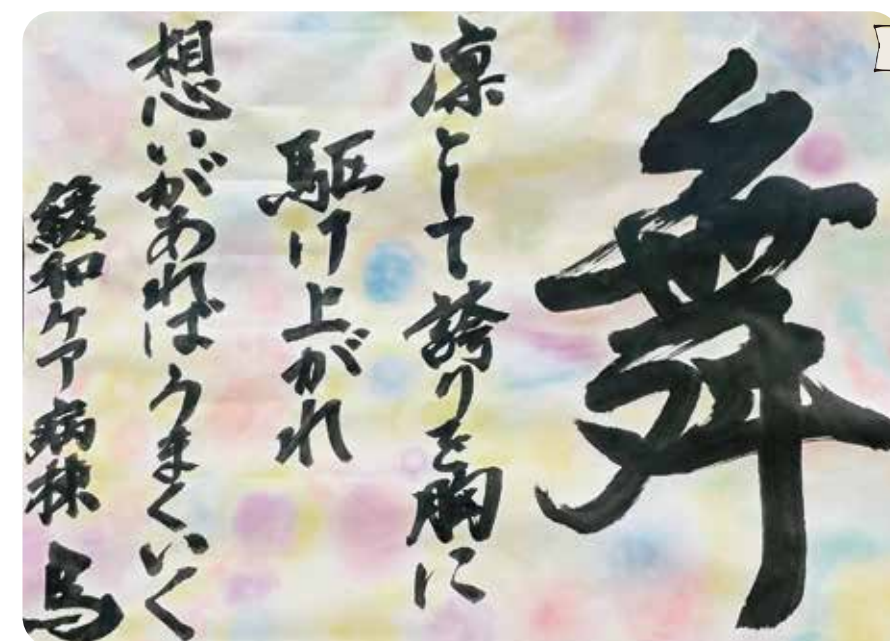 舞
凛として誇りを胸に
駆け上がれ
想いがあればうまくいく
緩和ケア病棟 馬